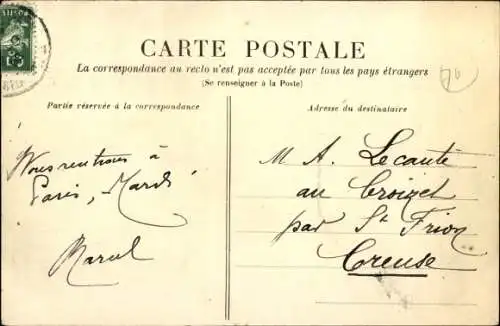 CARTE POSTALE
La correspondance au recto n'est pas acceptée par tous les pays étrangers
(Se renseigner à la Poste)
Partie réservée à la correspondance
Adresse du destinataire
Nous rentrons à
Paris, Mardi
Marcel
M A. Lecante
au Croizet
par St Frion
Creuse